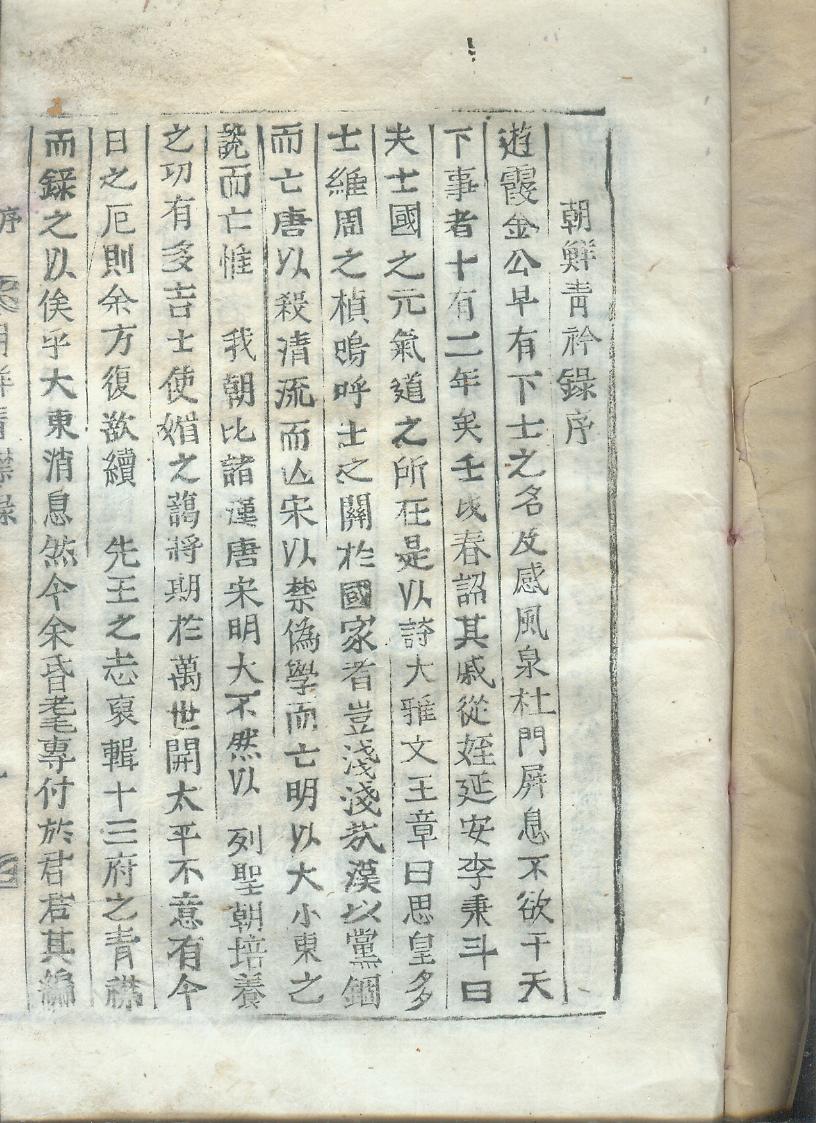 朝鮮靑衿錄序
遊霞金公早有下士之名及感風泉杜門屛息不欲干天
下事者十有二年矣壬戌春詔其戚從姪延安李秉斗曰
夫士國之元氣道之所在是以詩大雅文王章曰思皇多
士維周之楨嗚呼士之關於國家者豈淺淺哉漢以黨錮
而亡唐以殺淸流而亾宋以禁僞學而亡明以大小東之
說而亡惟 我朝比諸漢唐宋明大不然以 列聖朝培養
之功有多吉士使媚之藹將期於萬世開太平不意有今
日之厄則余方復欲續 先王之志裒輯十三府之靑襟
而錄之以俟乎大東消息然今余昏耄專付於君君其編
序
朝鮮靑襟錄